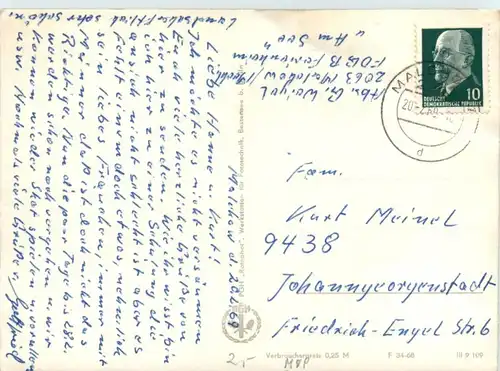 Abs. G. Weigel
2063 Malchow/Meckl.
FDGB Ferienheim
"Am See"
Malchow d. 20.2.69
Liebe Hanne u. Kurt!
Ich möchte es nicht versäumen
Euch viele herzliche Grüße von
hier zu senden. Wie ihr wißt bin
ich hier zu einer Schulung die
ansich nicht schlecht ist aber es
fehlt einem doch etwas, nehmlich
sein liebes Frauchen, immer mit
Männer daß ist doch nicht das
Richtige. Nun die paar Tage bis 28.2.
werden schon noch vergehen u. wir
können wieder Skat spielen u. vorallem
usw. Nochmals viele Grüße
Landschaftlich sehr schön.
PGH "Rotophot", Werkstätten für Fototechnik, Bestensee b. Berlin
MALCHOW
20.2.69
d
10
DEUTSCHE
DEMOKRATISCHE REPUBLIK
Fam.
Kurt Meinel
9438
Johanngeorgenstadt
Friedrich-Engel Str. 6
2,-
MVP
Verbraucherpreis 0,25 M F 34-68 III 9 109